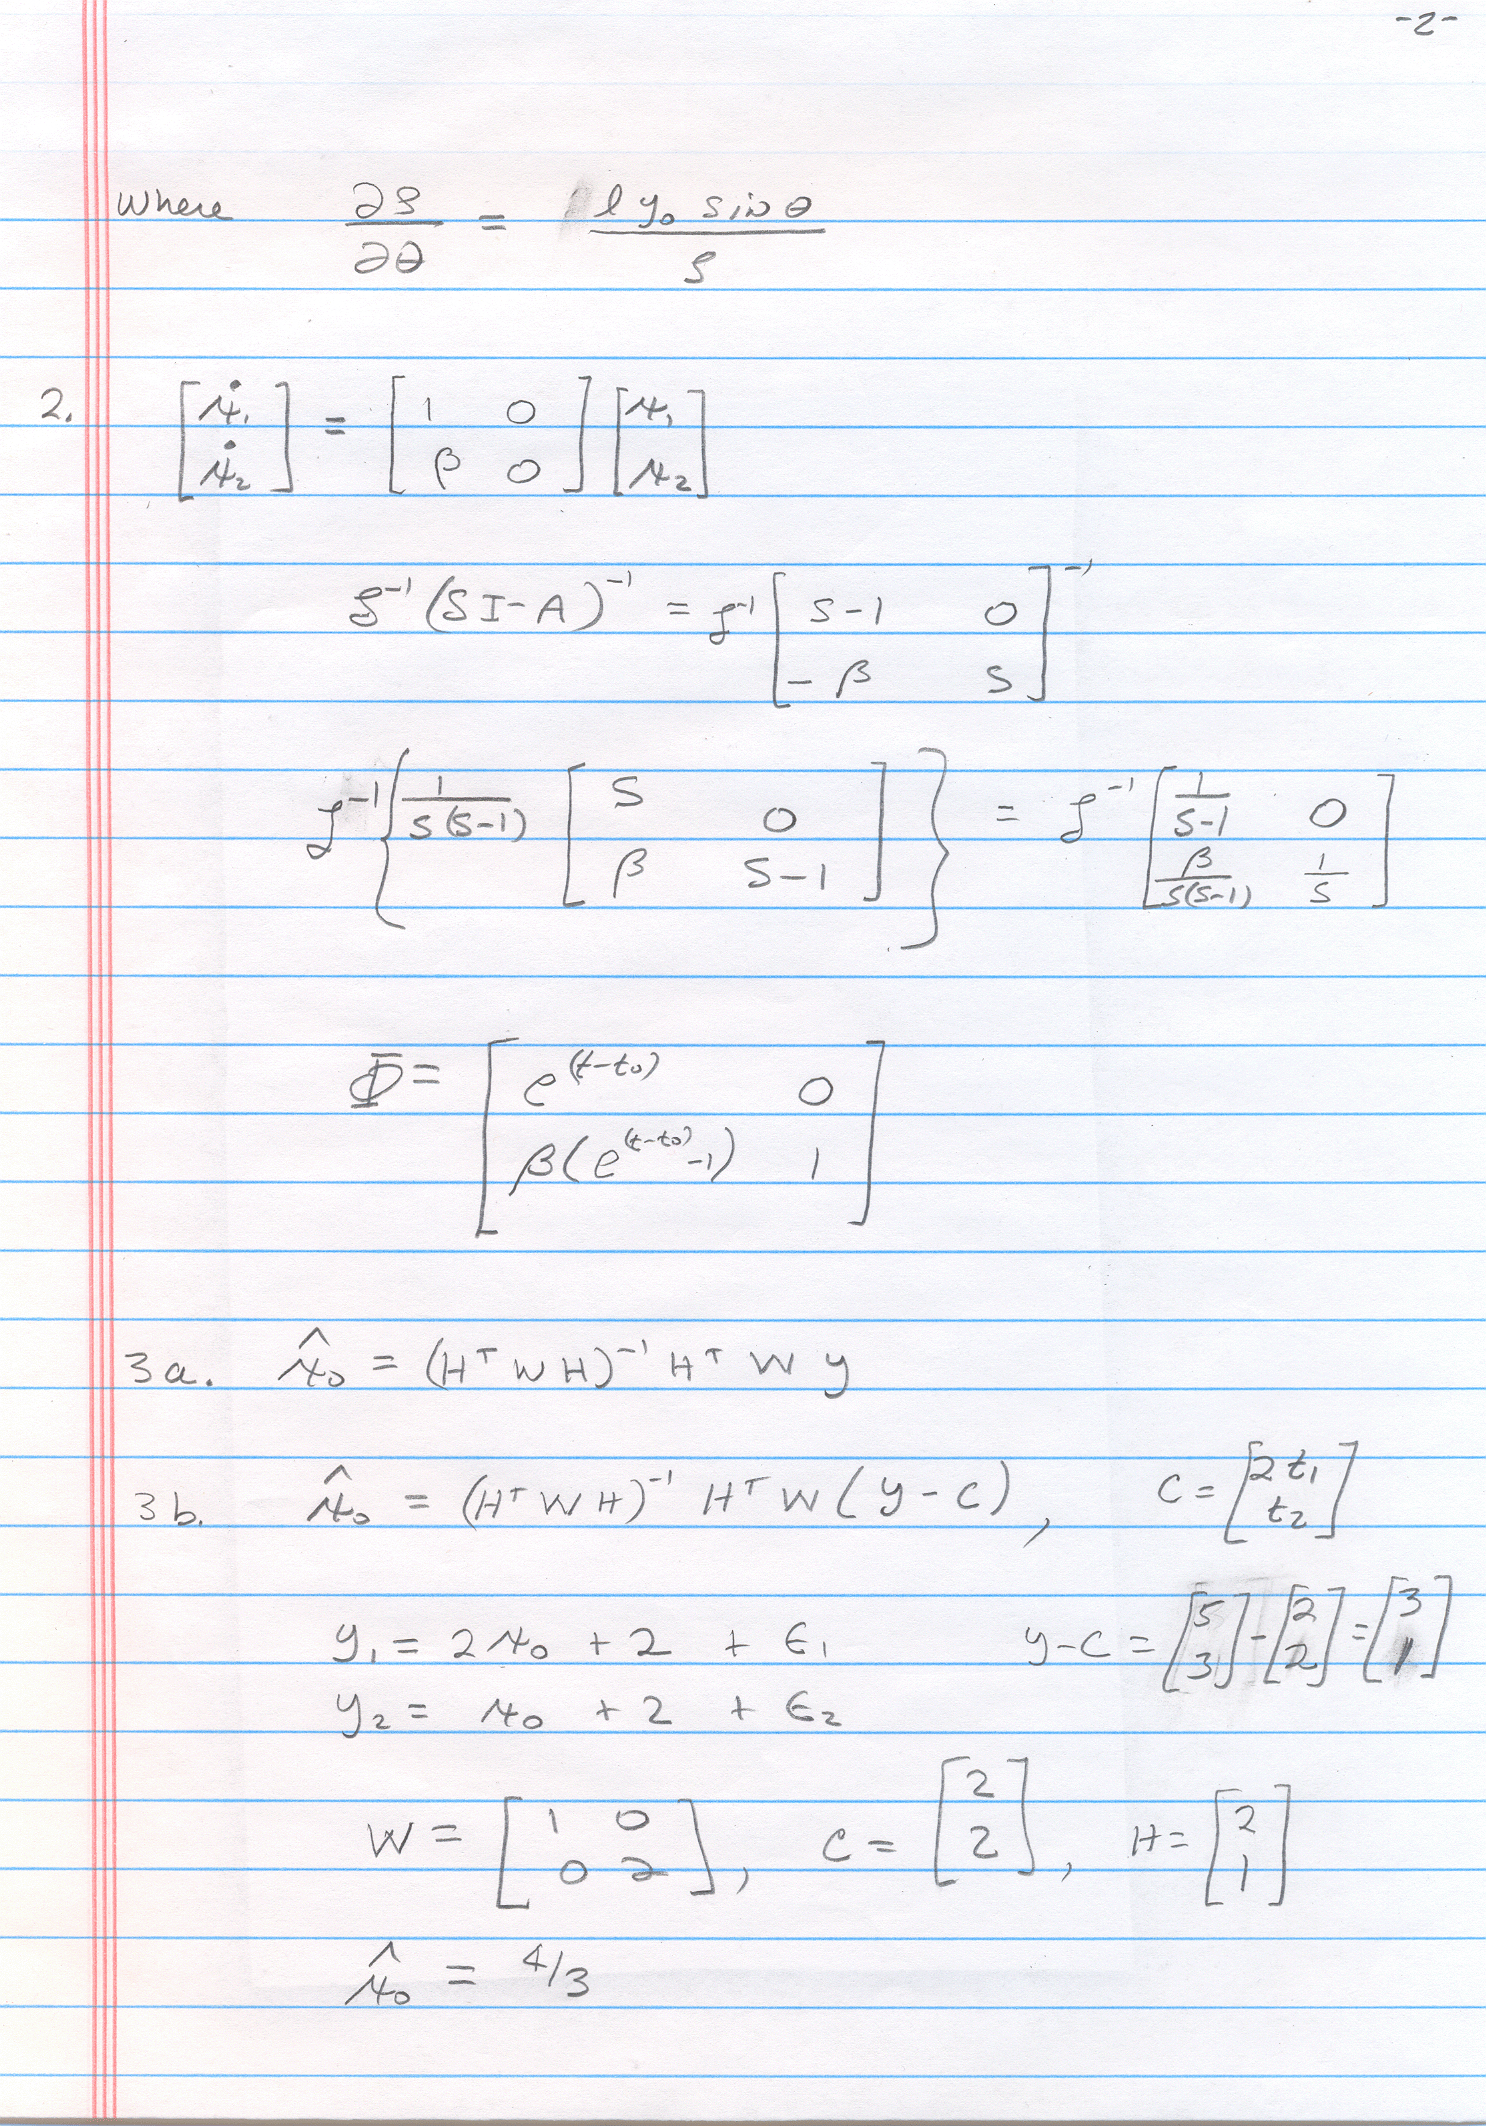 -2-
where ∂ρ/∂θ = l y₀ sin θ / ρ
2. [ẋ₁; ẋ₂] = [1 0; β 0] [x₁; x₂]
ℒ⁻¹(SI-A)⁻¹ = ℒ⁻¹ [S-1 0; -β S]⁻¹
ℒ⁻¹{1/S(S-1) [S 0; β S-1]} = ℒ⁻¹ [1/S-1 0; β/S(S-1) 1/S]
Φ = [e^(t-t₀) 0; β(e^(t-t₀)-1) 1]
3a. x̂₀ = (HᵀWH)⁻¹ Hᵀ W y
3b. x̂₀ = (HᵀWH)⁻¹ HᵀW(y-c), C = [2t₁; t₂]
y₁ = 2x₀ + 2 + ε₁ y-c = [5; 3] - [2; 2] = [3; 1]
y₂ = x₀ + 2 + ε₂
W = [1 0; 0 2], C = [2; 2], H = [2; 1]
x̂₀ = 4/3